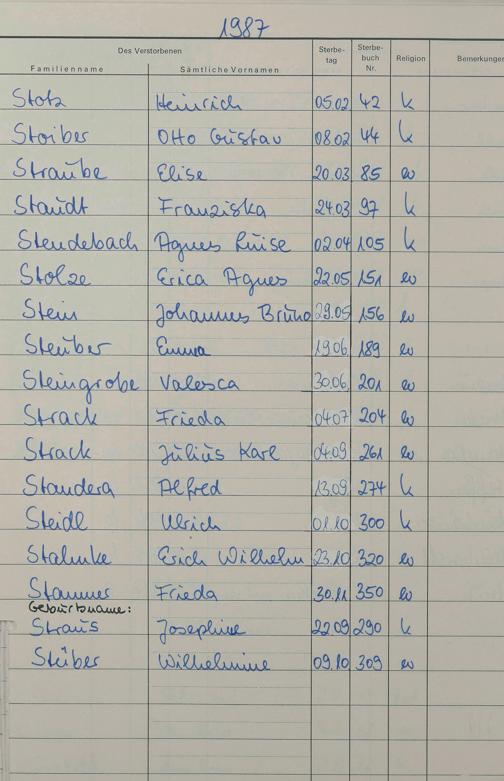 1987
Des Verstorbenen Sterbe- Sterbe- Religion Bemerkungen
tag buch
Familienname Sämtliche Vornamen Nr.
Stotz Heinrich 05.02 42 k
Stoiber Otto Gustav 08.02 44 k
Straube Elise 20.03 85 ev
Staudt Franziska 24.03 97 k
Steudebach Agnes Luise 02.04 105 k
Stolze Erica Agnes 22.05 151 ev
Stein Johannes Bruno 29.05 156 ev
Steuber Emma 19.06 189 ev
Steingrobe Valesca 30.06 201 ev
Strack Frieda 04.07 204 ev
Strack Julius Karl 04.09 261 ev
Standera Alfred 13.09 274 k
Steidl Ulrich 01.10 300 k
Stahnke Erich Wilhelm 23.10 320 ev
Stammer Frieda 30.11 350 ev
Geburtsname:
Straus Josephine 22.09 290 k
Stüber Wilhelmine 09.10 309 ev